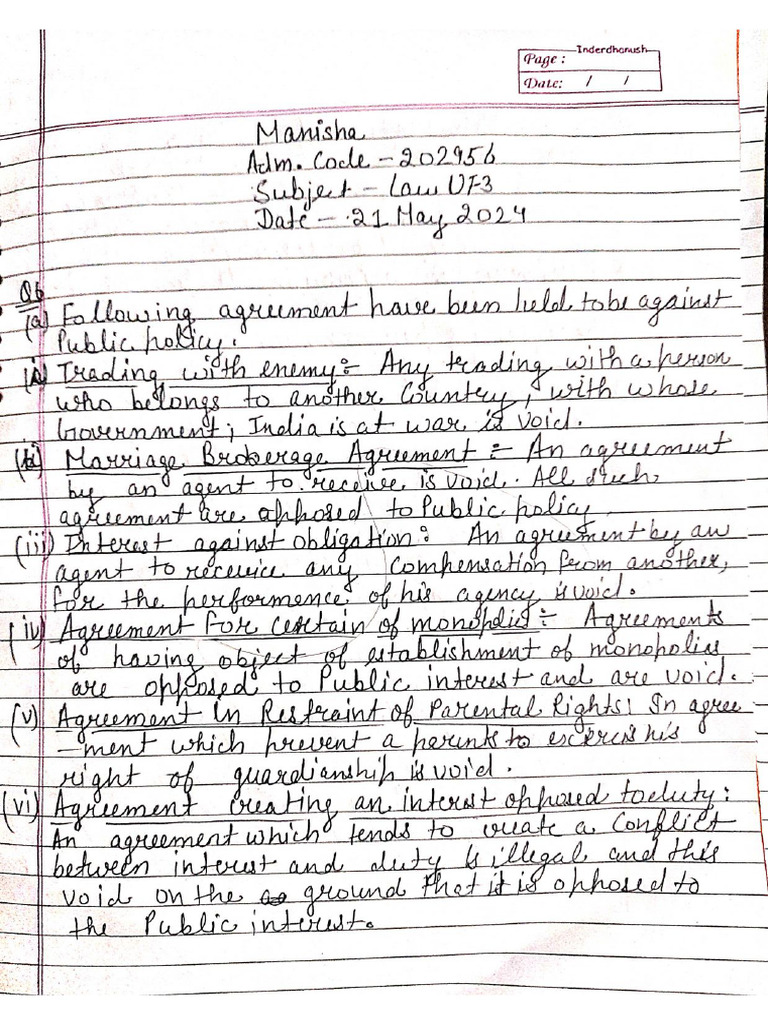 Inderdhanush
Page :
Date: / /
Manisha
Adm. Code - 202956
Subject - Law UF3
Date - 21 May 2024
Q6
(a) Following agreement have been held to be against
Public policy.
(i) Trading with enemy:- Any trading with a person
who belongs to another Country, with whose
Government; India is at war is Void.
(ii) Marriage Brokerage Agreement :- An agreement
by an agent to receive is void. All such
agreement are opposed to Public policy
(iii) Interest against obligation: An agreement by an
agent to receive any Compensation from another,
for the performence of his agency is void.
(iv) Agreement for certain of monopolis :- Agreements
of having object of establishment of monopolies
are opposed to Public interest and are void.
(v) Agreement in Restraint of Parental Rights: In agree
-ment which prevent a parents to his
right of guardianship is void.
(vi) Agreement creating an interst opposed to duty:
An agreement which tends to create a Conflict
between interest and duty is illegal and this
void on the ground that it is opposed to
the Public interest.